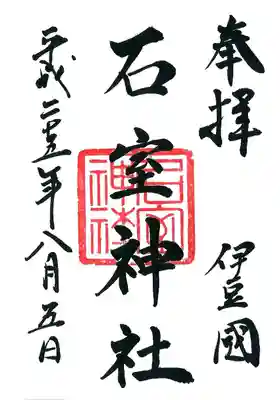 奉拝
伊豆國
石室神社
石室神社
平成二十五年八月五日